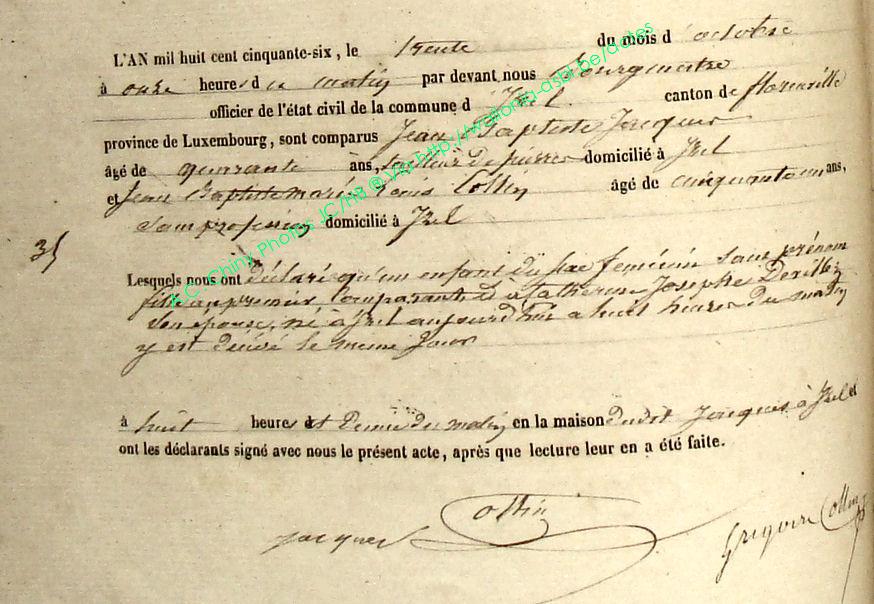 L'AN mil huit cent cinquante-six, le trente du mois d octobre
à onze heures d u matin par devant nous Bourgmestre
officier de l'état civil de la commune d' Izel canton de florenville
province de Luxembourg, sont comparus Jean Baptiste Jacques
âgé de quarante ans, tailleur de pierres domicilié à Izel
et Jean Baptiste marie Louis Collin âgé de cinquante un ans,
sans profession domicilié à Izel
35
Lesquels nous ont déclaré qu'un enfant du sexe feminin sans prénom
fille au premier Comparant et à Catherine Josephe
son épouse, né à Izel aujourd'hui a huit heures du matin
y est décédé le meme jour
à huit heures et demie du matin en la maison dudit Jacques à Izel et
ont les déclarants signé avec nous le présent acte, après que lecture leur en a été faite.
Collin
Jacques
Gregoire Collin
A.C. Chiny Photos JC/HB @ Voir http://wallonia-asbl.be/actes